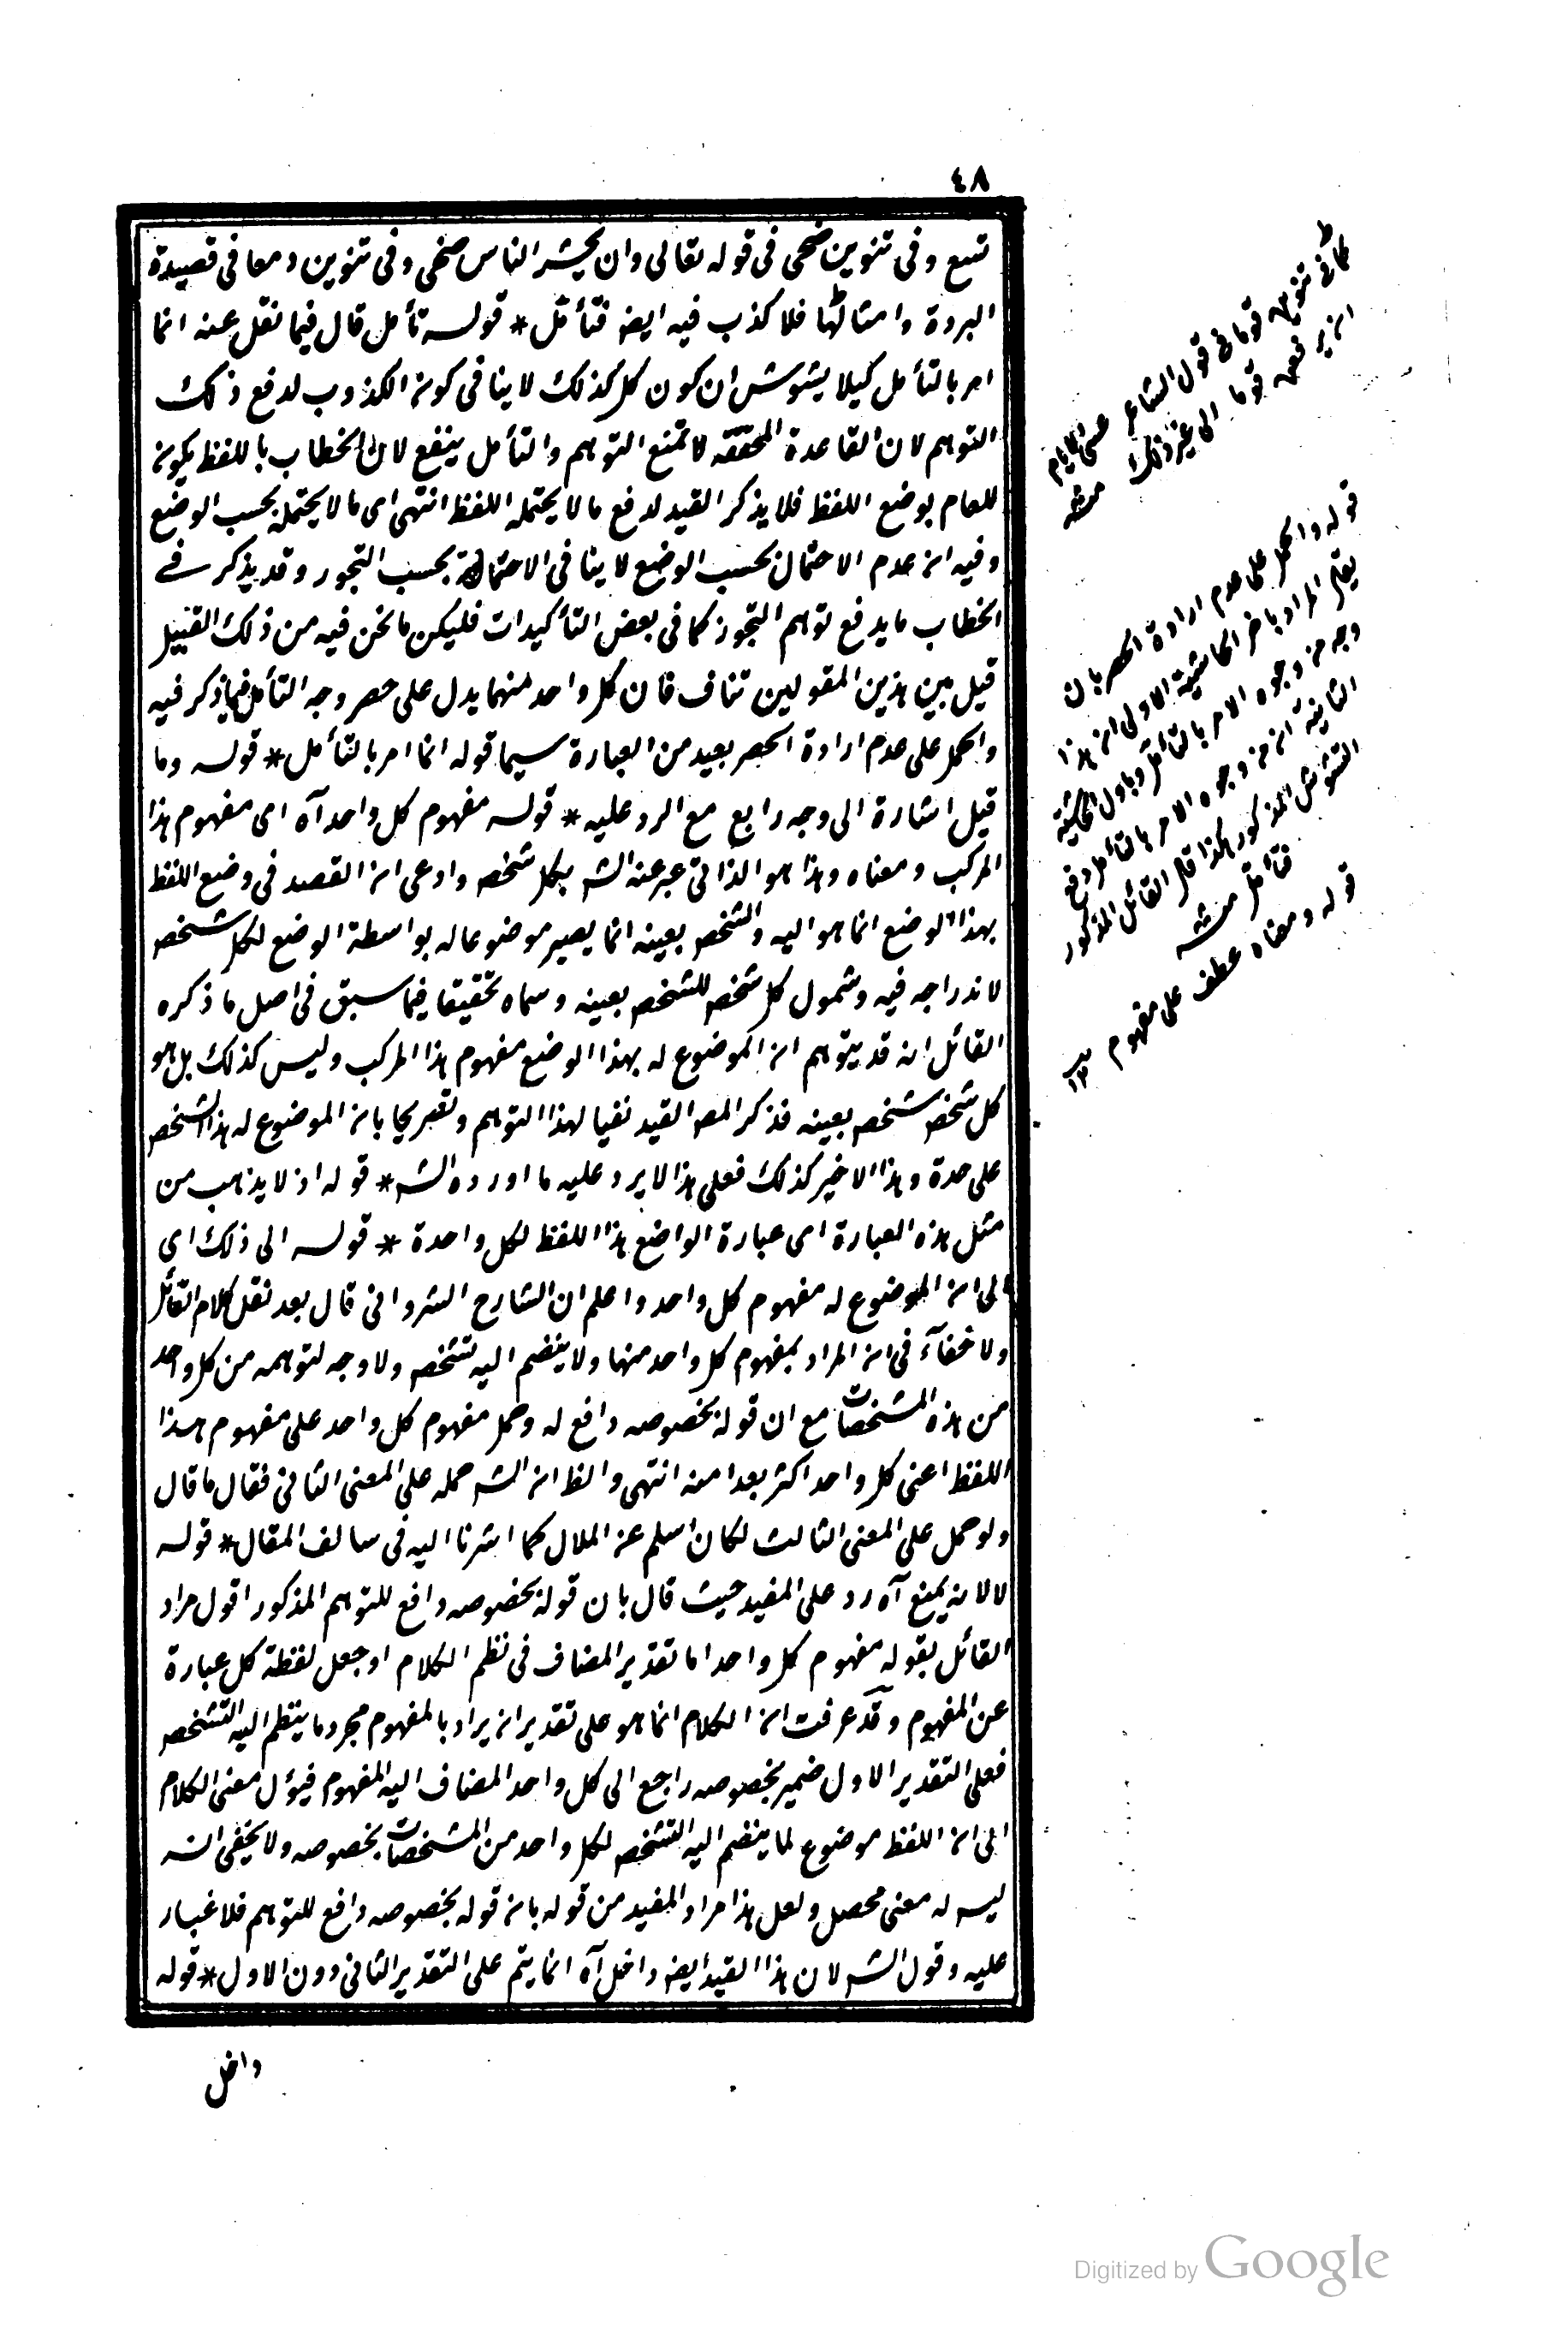 ٤٨
تسع وفى تنوين ضحى فى قوله تعالى وان يحشر الناس ضحى وفى تنوين دمعا فى قصيدة
البردة وامثالها فلا كذب فيه ايضا فتأمّل * قوله تأمل قال فيما نقل عنه انما
امر بالتأمل كيلا يشوش ان كون كل كذلك لا ينافى كونه الكذوب لدفع ذلك
التوهم لان القاعدة المحققة لا تمنع التوهم والتأمل ينفع لان الخطاب باللفظ يكون
للعام بوضع اللفظ فلا يذكر القيد لدفع ما لا يحتمله اللفظ انتهى اى ما لا يحتمله بحسب الوضع
وفيه ان عدم الاحتمال بحسب الوضع لا ينافى الاحتمال بحسب التجوز وقد يذكر فى
الخطاب ما يدفع توهم التجوز كما فى بعض التأكيدات فليكن ما نحن فيه من ذلك القبيل
قيل بين هذين المقولين تناف فان كل واحد منهما يدل على حصر وجه التأمل فيما ذكر فيه
والحمل على عدم ارادة الحصر بعيد من العبارة سيما قوله انما امر بالتأمل * قوله وما
قيل اشارة الى وجه رابع مع الرد عليه * قوله مفهوم كل واحد آه اى مفهوم هذا
المركب ومعناه وهذا هو الذاتى عبر عنه الشه بكل شخص وادعى ان القصد فى وضع اللفظ
بهذا الوضع انما هو اليه والشخص بعينه انما يصير موضوعا له بواسطة الوضع لكل شخص
لاندراجه فيه وشمول كل شخص للشخص بعينه وسماه تحقيقا فيما سبق فى اصل ما ذكره
القائل انه قد يتوهم ان الموضوع له بهذا الوضع مفهوم هذا المركب وليس كذلك بل هو
كل شخص شخص بعينه فذكر المص القيد نفيا لهذا التوهم وتصريحا بان الموضوع له هذا الشخص
على حدة وهذا الاخير كذلك فعلى هذا لا يرد عليه ما اورده الشه * قوله اذ لا يذهب من
مثل هذه العبارة اى عبارة الواضع هذا اللفظ لكل واحدة * قوله الى ذلك اى
الى ان الموضوع له مفهوم كل واحد واعلم ان الشارح الشروانى قال بعد نقل كلام القائل
ولا خفآء فى ان المراد بمفهوم كل واحد منها ولا ينضم اليه تشخص ولا وجه لتوهمه من كل واحد
من هذه المشخصات مع ان قوله بخصوصه دافع له وحمل مفهوم كل واحد على مفهوم هذا
اللفظ اعنى كل واحد اكثر بعدا منه انتهى والظ ان الشه حمله على المعنى الثانى فقال ما قال
ولو حمل على المعنى الثالث لكان اسلم عن الملال كما اشرنا اليه فى سالف المقال * قوله
لا لانه يمنع آه رد على المفيد حيث قال بان قوله بخصوصه دافع للتوهم المذكور اقول مراد
القائل بقوله مفهوم كل واحد اما تقدير المضاف فى نظم الكلام او جعل لفظة كل عبارة
عن المفهوم وقد عرفت ان الكلام انما هو على تقدير ان يراد بالمفهوم مجرد ما ينتظم اليه التشخص
فعلى التقدير الاول ضمير بخصوصه راجع الى كل واحد المضاف اليه المفهوم فيؤل معنى الكلام
الى ان اللفظ موضوع لما ينضم اليه التشخص لكل واحد من المشخصات بخصوصه ولا يخفى انه
ليس له معنى محصل ولعل هذا مراد المفيد من قوله بان قوله بخصوصه دافع للتوهم فلا غبار
عليه وقول الشه لان هذا القيد ايضا داخل آه انما يتم على التقدير الثانى دون الاول * قوله
داخل
كما فى تنوين قوما فى قول الشاعر عسى الايام
ان يرجعن قوما الى غير ذلك منه
قوله والحمل على عدم ارادة الحصر بان
يقال المراد باخر الحاشية الاولى ان هذا
وجه من وجوه الامر بالتأمل وباول الحاشية
الثانية ان من وجوه الامر بالتأمل دفع
التشوش المذكور هكذا قال القائل المذكور
فتأمل منه
قوله ومعناه عطف على مفهوم
Digitized by Google